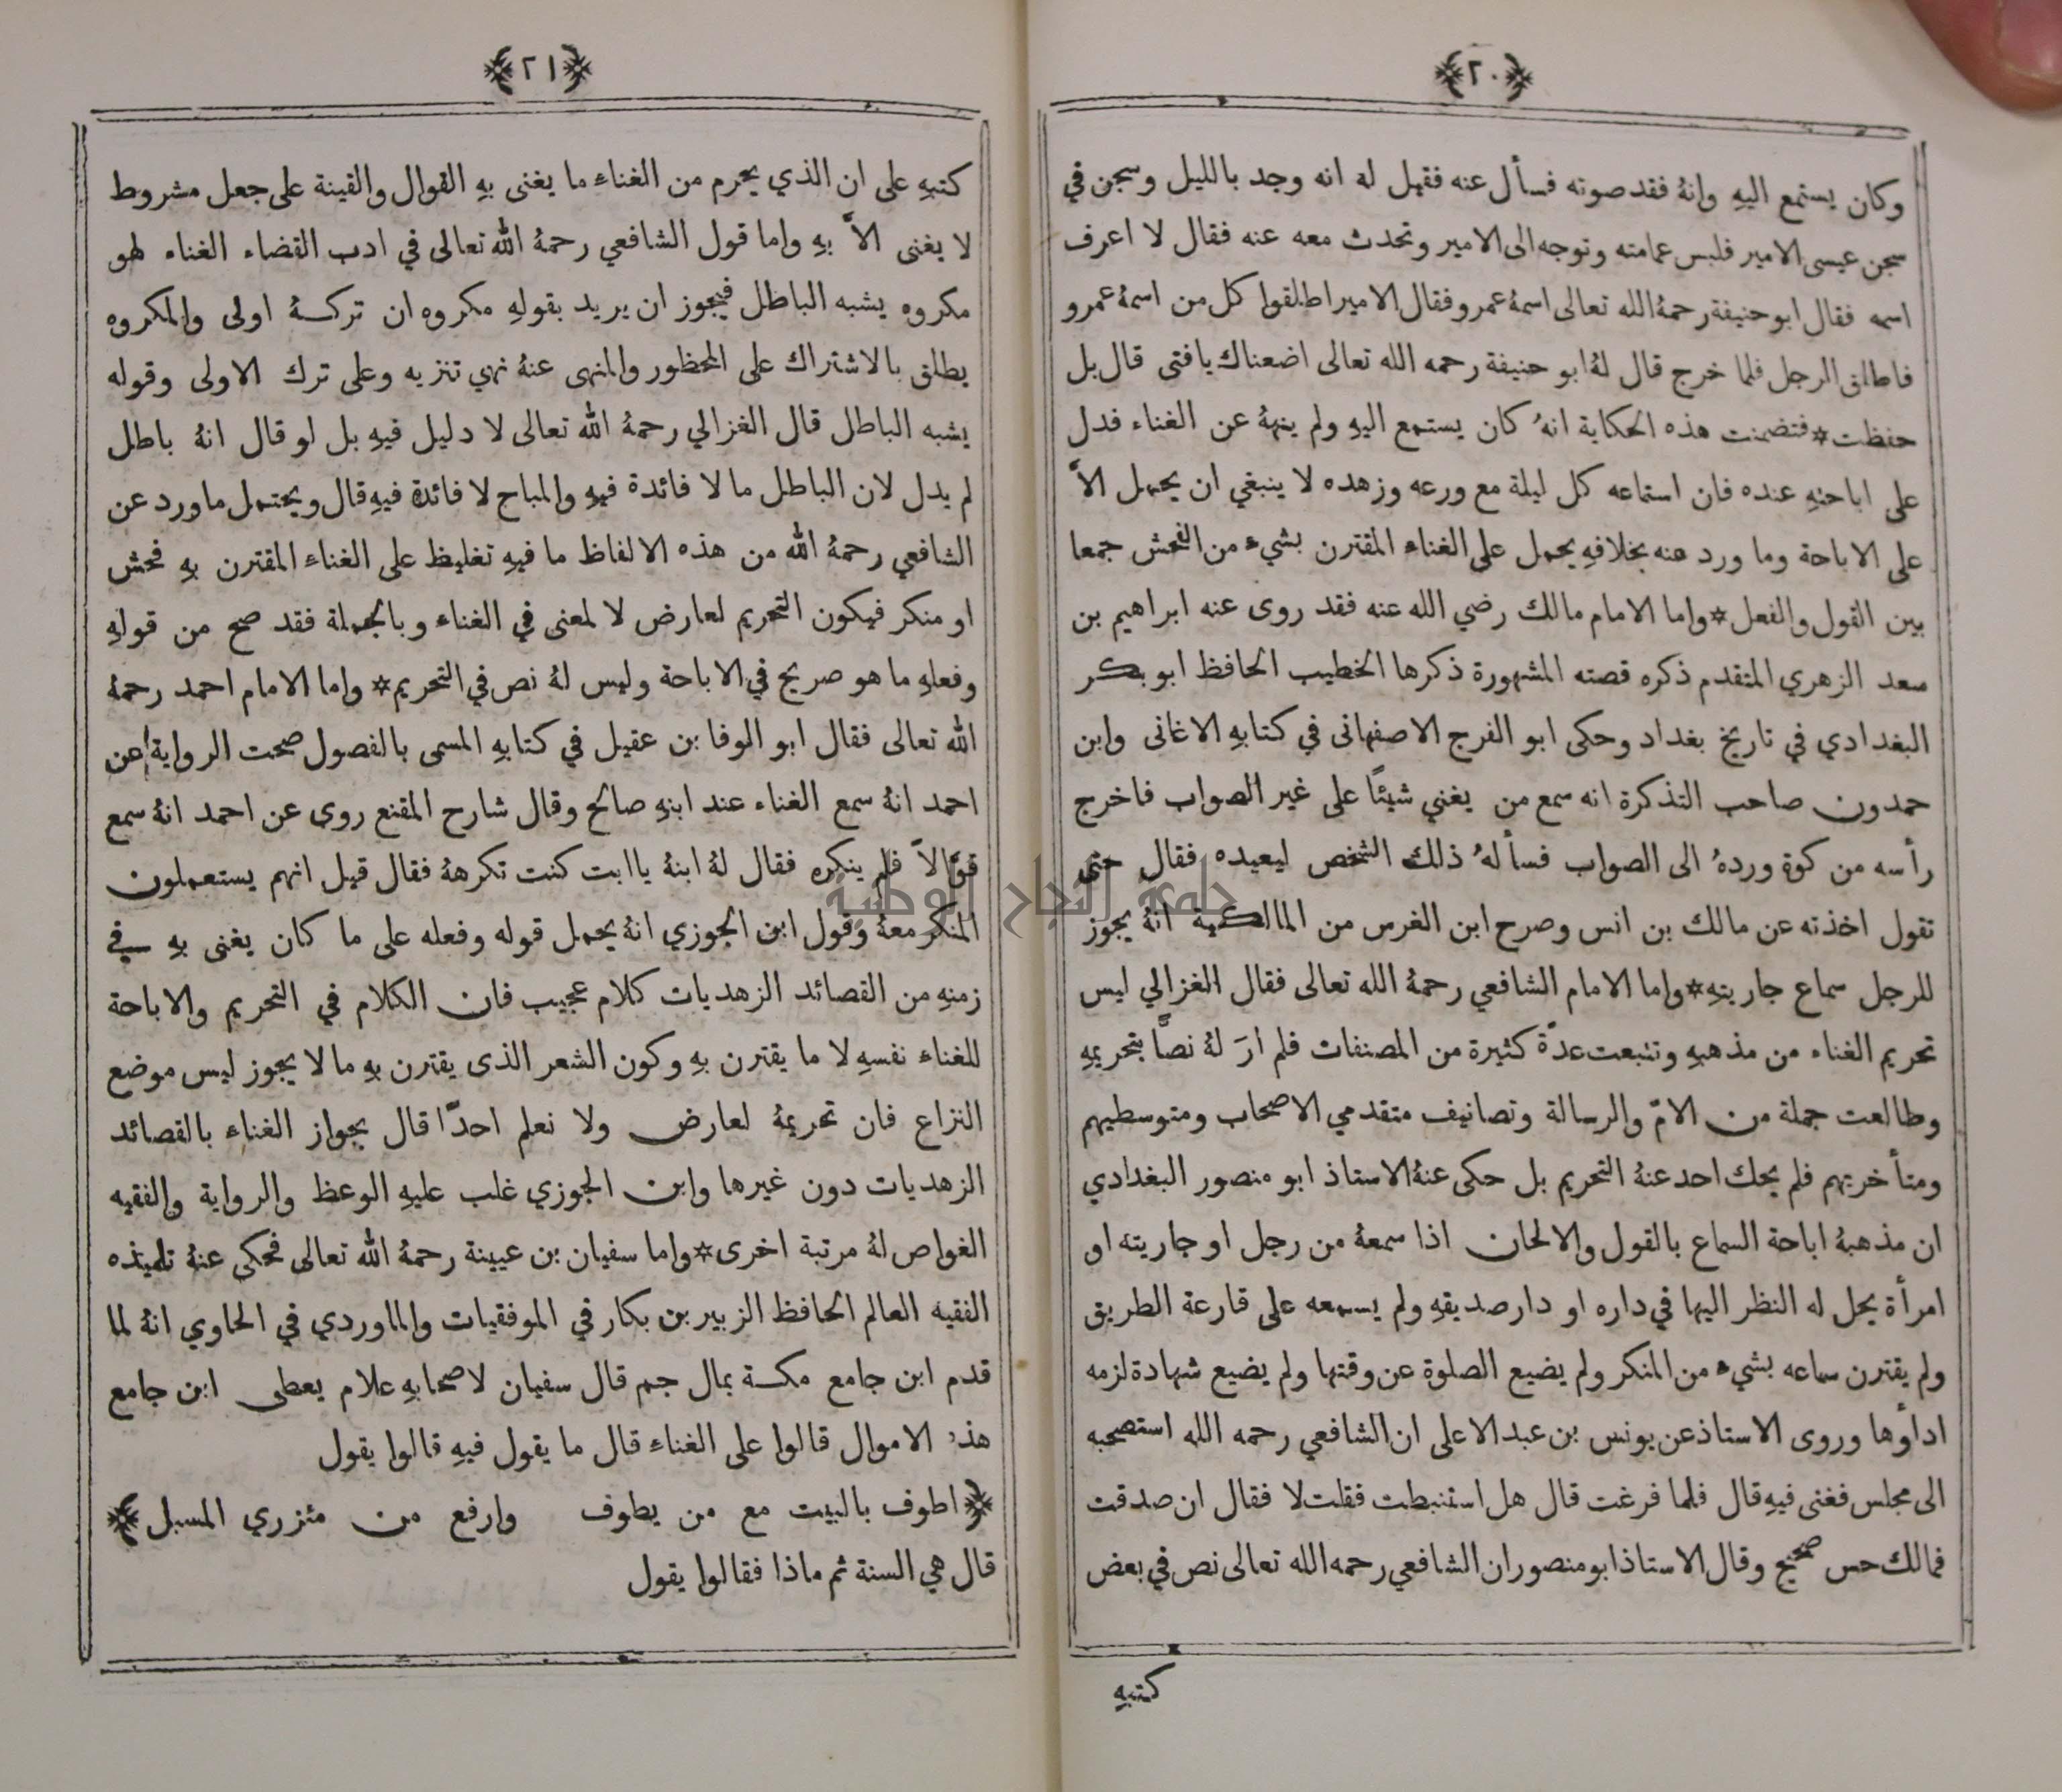 ﴿٢٠﴾
وكان يستمع اليهِ وانهُ فقد صوته فسأل عنه فقيل له انه وجد بالليل وسجن في
سجن عيسى الامير فلبس عمامته وتوجه الى الامير وتحدث معه عنه فقال لا اعرف
اسمه فقال ابو حنيفة رحمهُ الله تعالى اسمهُ عمرو فقال الامير اطلقوا كل من اسمهُ عمرو
فاطلق الرجل فلما خرج قال لهُ ابو حنيفة رحمه الله تعالى اضعناك يا فتى قال بل
حفظت * فتضمنت هذه الحكاية انهُ كان يستمع اليهِ ولم ينههُ عن الغناء فدل
على اباحتهِ عنده فان استماعه كل ليلة مع ورعه وزهده لا ينبغي ان يحمل الاَّ
على الاباحة وما ورد عنه بخلافهِ يحمل على الغناء المقترن بشيء من الفحش جمعا
بين القول والفعل * واما الامام مالك رضي الله عنه فقد روى عنه ابراهيم بن
سعد الزهري المتقدم ذكره قصته المشهورة ذكرها الخطيب الحافظ ابو بكر
البغدادي في تاريخ بغداد وحكى ابو الفرج الاصفهانى في كتابهِ الاغانى وابن
حمدون صاحب التذكرة انه سمع من يغني شيئًا على غير الصواب فاخرج
رأسه من كوة وردهُ الى الصواب فسألهُ ذلك الشخص ليعيده فقال حتى
تقول اخذته عن مالك بن انس وصرح ابن الغرس من المالكية انهُ يجوز
للرجل سماع جاريتهِ * واما الامام الشافعي رحمهُ الله تعالى فقال الغزالي ليس
تحريم الغناء من مذهبهِ وتتبعت عدّة كثيرة من المصنفات فلم ارَ لهُ نصاً بتحريمهِ
وطالعت جملة من الامّ والرسالة وتصانيف متقدمي الاصحاب ومتوسطيهم
ومتأخريهم فلم يحك احد عنهُ التحريم بل حكى عنهُ الاستاذ ابو منصور البغدادي
ان مذهبهُ اباحة السماع بالقول والالحان اذا سمعهُ من رجل او جاريته او
امرأة يحل له النظر اليها في داره او دار صديقهِ ولم يسمعه على قارعة الطريق
ولم يقترن سماعه بشيء من المنكر ولم يضيع الصلوة عن وقتها ولم يضيع شهادة لزمه
اداؤها وروى الاستاذ عن يونس بن عبد الاعلى ان الشافعي رحمه الله استصحبه
الى مجلس فغنى فيهِ قال فلما فرغت قال هل استنبطت فقلت لا فقال ان صدقت
فمالك حس صحيح وقال الاستاذ ابو منصور ان الشافعي رحمه الله تعالى نص في بعض
كتبهِ
﴿٢١﴾
كتبهِ على ان الذي يحرم من الغناء ما يغنى بهِ القوال والقينة على جعل مشروط
لا يغنى الاَّ بهِ واما قول الشافعي رحمهُ الله تعالى في ادب القضاء الغناء لهو
مكروه يشبه الباطل فيجوز ان يريد بقولهِ مكروه ان تركهُ اولى والمكروه
يطلق بالاشتراك على المحظور والمنهى عنهُ نهي تنزيه وعلى ترك الاولى وقوله
يشبه الباطل قال الغزالي رحمهُ الله تعالى لا دليل فيهِ بل لو قال انهُ باطل
لم يدل لان الباطل ما لا فائدة فيهِ والمباح لا فائدة فيهِ قال ويحتمل ما ورد عن
الشافعي رحمهُ الله من هذه الالفاظ ما فيهِ تغليظ على الغناء المقترن بهِ فحش
او منكر فيكون التحريم لعارض لا لمعنى في الغناء وبالجملة فقد صح من قولهِ
وفعلهِ ما هو صريح في الاباحة وليس لهُ نص في التحريم * واما الامام احمد رحمهُ
الله تعالى فقال ابو الوفا بن عقيل في كتابهِ المسمى بالفصول صحت الرواية عن
احمد انهُ سمع الغناء عند ابنهِ صالح وقال شارح المقنع روى عن احمد انهُ سمع
قوَّالاً فلم ينكره فقال لهُ ابنهُ يا ابت كنت تكرههُ فقال قيل انهم يستعملون
المنكر معهُ وقول ابن الجوزي انهُ يحمل قوله وفعله على ما كان يغنى بهِ في
زمنهِ من القصائد الزهديات كلام عجيب فان الكلام في التحريم والاباحة
للغناء نفسهِ لا ما يقترن بهِ وكون الشعر الذى يقترن بهِ ما لا يجوز ليس موضع
النزاع فان تحريمهُ لعارض ولا نعلم احدًا قال بجواز الغناء بالقصائد
الزهديات دون غيرها وابن الجوزي غلب عليهِ الوعظ والرواية والفقيه
الغواص لهُ مرتبة اخرى * واما سفيان بن عيينة رحمهُ الله تعالى فحكى عنهُ تلميذه
الفقيه العالم الحافظ الزبير بن بكار في الموفقيات والماوردي في الحاوي انهُ لما
قدم ابن جامع مكة بمال جم قال سفيان لاصحابهِ علام يعطى ابن جامع
هذه الاموال قالوا على الغناء قال ما يقول فيهِ قالوا يقول
﴿اطوف بالبيت مع من يطوف وارفع من مئزري المسبل﴾
قال هي السنة ثم ماذا فقالوا يقول
جامعة النجاح الوطنية